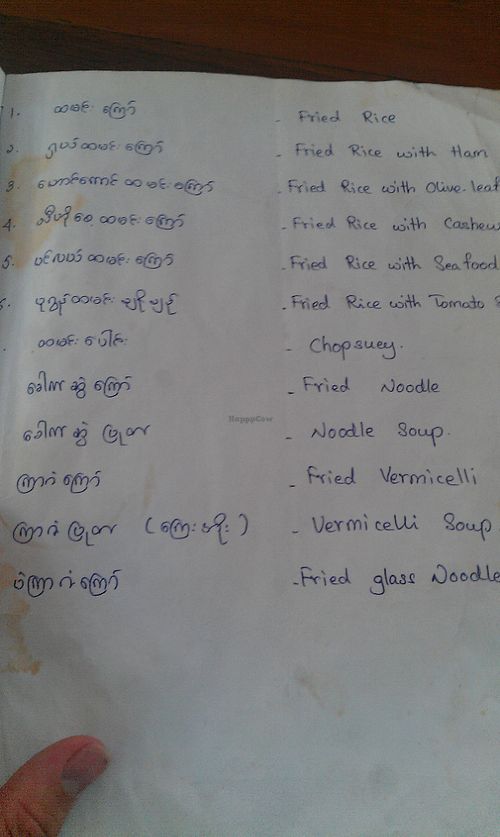 ၁. ထမင်း ကြော် - Fried Rice
၂. ထမင်း ကြော် - Fried Rice with Ham
3. ထမင်း ကြော် - Fried Rice with Olive leaf
4. ထမင်း ကြော် - Fried Rice with Cashew
5. ပင်လယ်ထမင်း ကြော် - Fried Rice with Seafood
ထမင်း - Fried Rice with Tomato
ထမင်း ပေါင်း - Chopsuey.
ခေါက်ဆွဲ ကြော် - Fried Noodle
ခေါက်ဆွဲ ပြုတ် - Noodle Soup.
ကြာဇံ ကြော် - Fried Vermicelli
ကြာဇံ ပြုတ် (ကြေးအိုး) - Vermicelli Soup
ပဲကြာဇံကြော် - Fried glass Noodle
HappyCow